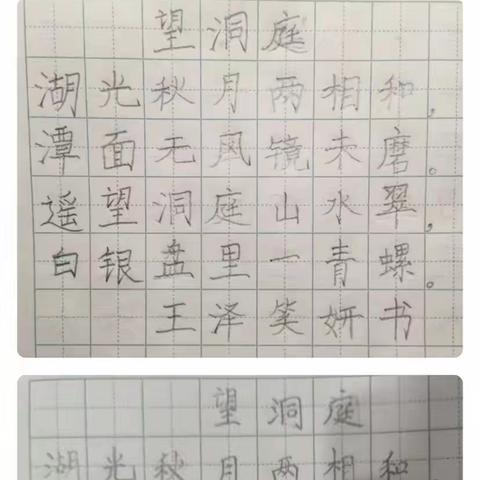 望洞庭
湖光秋月两相和，
潭面无风镜未磨。
遥望洞庭山水翠，
白银盘里一青螺。
王泽笑妍书
望洞庭
湖光秋月两相和